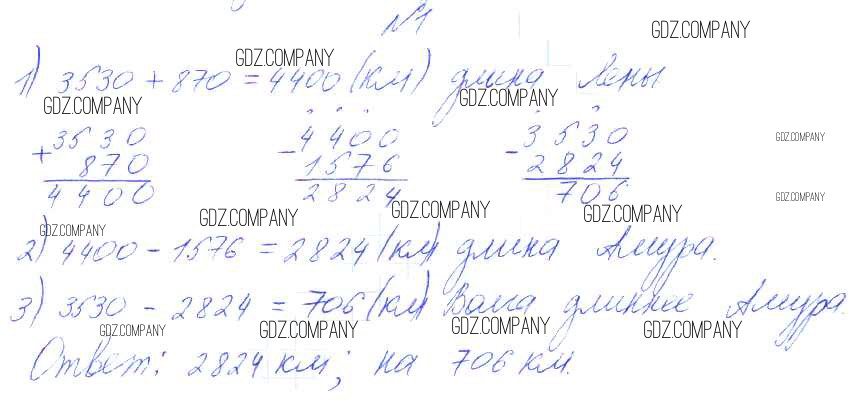 №1
GDZ.COMPANY
GDZ.COMPANY
1) 3530 + 870 = 4400 (км) длина Лены
GDZ.COMPANY GDZ.COMPANY
+3530 -4400 -3530 GDZ.COMPANY
870 1576 2824
4400 2824 706 GDZ.COMPANY
GDZ.COMPANY GDZ.COMPANY GDZ.COMPANY GDZ.COMPANY
2) 4400 - 1576 = 2824 (км) длина Амура.
3) 3530 - 2824 = 706 (км) Волга длиннее Амура.
GDZ.COMPANY GDZ.COMPANY GDZ.COMPANY GDZ.COMPANY
Ответ: 2824 км; на 706 км.